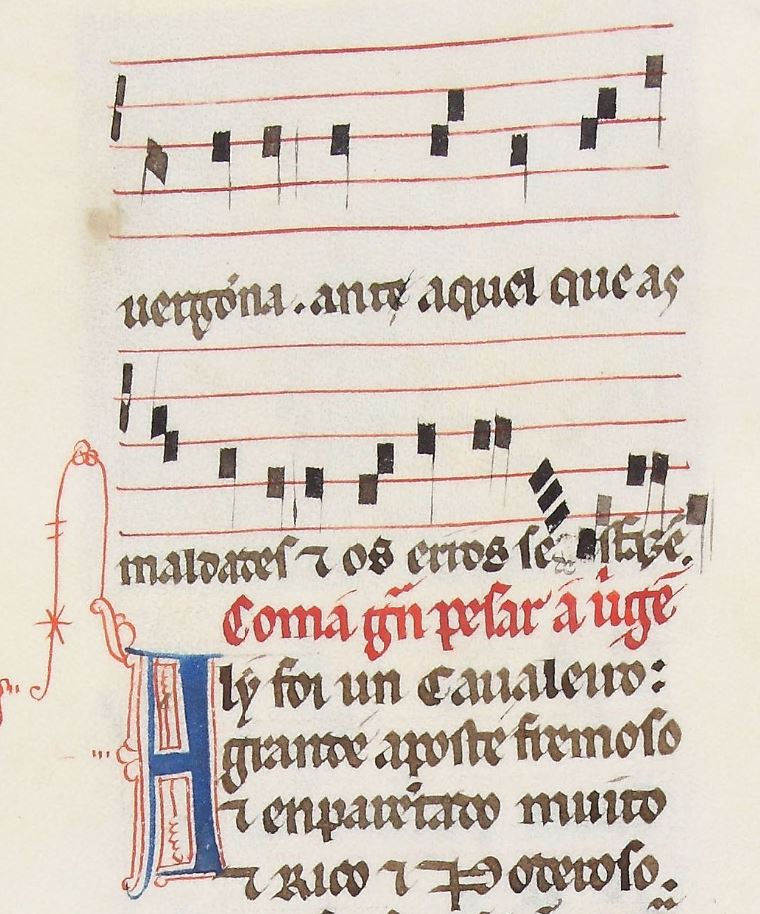 uergonna. ante aquel que as
maldades ⁊ os erros se desfazẽ.
Com a gr̃n pesar a uirgẽ
Aly foi un Caualeiro:
grande aposte fremoso
⁊ enparẽtado muito
⁊ Rico ⁊ Poderoso.